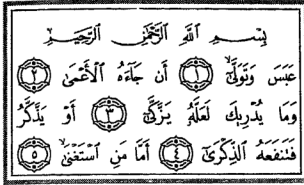 بِسْمِ اللَّهِ الرَّحْمَٰنِ الرَّحِيمِ
عَبَسَ وَتَوَلَّىٰٓ ١ أَن جَآءَهُ الْأَعْمَىٰ ٢
وَمَا يُدْرِيكَ لَعَلَّهُۥ يَزَّكَّىٰٓ ٣ أَوْ يَذَّكَّرُ
فَتَنفَعَهُ الذِّكْرَىٰٓ ٤ أَمَّا مَنِ اسْتَغْنَىٰ ٥